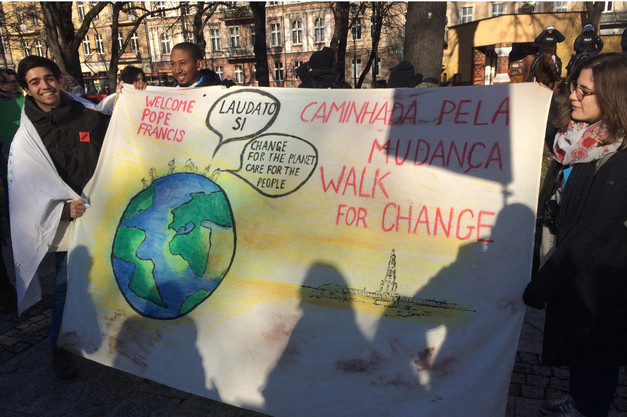 WELCOME
POPE
FRANCIS
LAUDATO
SI
CHANGE
FOR THE PLANET
CARE FOR THE
PEOPLE
CAMINHADA PELA
MUDANÇA
WALK
FOR CHANGE